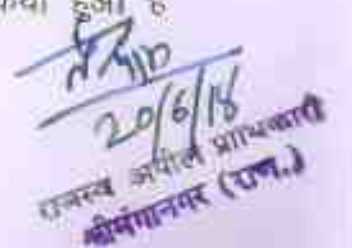 हुआ है
20/6/18
राजस्व अपील प्राधिकारी
श्रीगंगानगर (राज.)